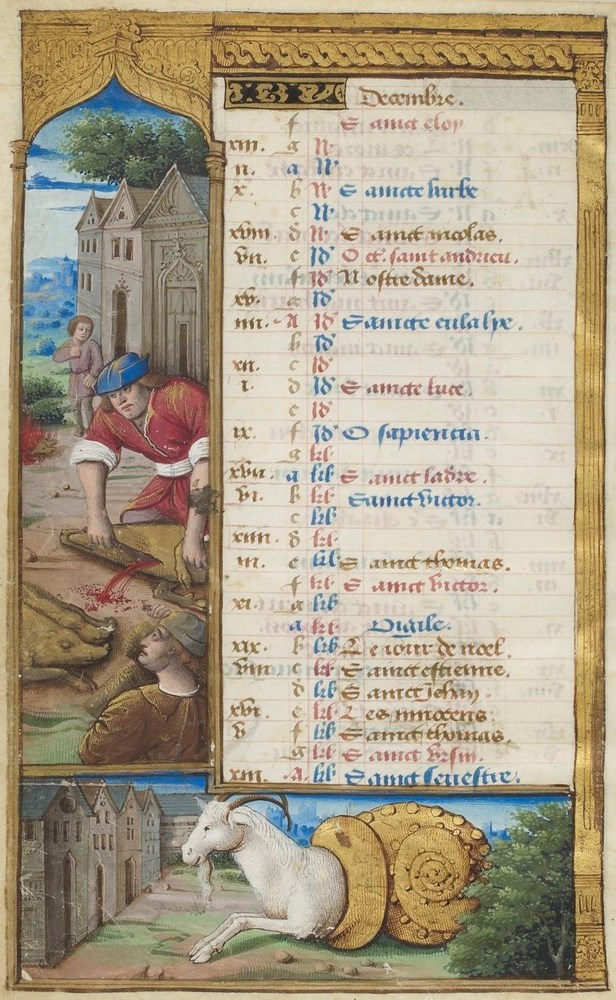 Decembre.
f Sainct eloy
xiii. g N
ii. a N
x. b N Saincte barbe
c N
xviii d N Sainct nicolas.
vii. e Id Oct. saint andrieu.
f Id Nostre dame.
xv. g Id
iiii. A Id Saincte eulalye.
b Id
xii. c Id
i. d Id Saincte luce.
e Id
ix. f Id O sapiencia.
g kl
xvii. a kl Sainct ladre.
vi. b kl Sainct victor.
c kl
xiiii. d kl
iii. e kl Sainct thomas.
f kl Sainct victor.
xi. g kl
a kl Vigile.
xix. b kl Le iour de noel.
viii c kl Sainct estienne.
d kl Sainct Jehan
xvi. e kl Les innocens.
v f kl Sainct thomas.
g kl Sainct Ursin.
xiii. A kl Sainct seuestre.